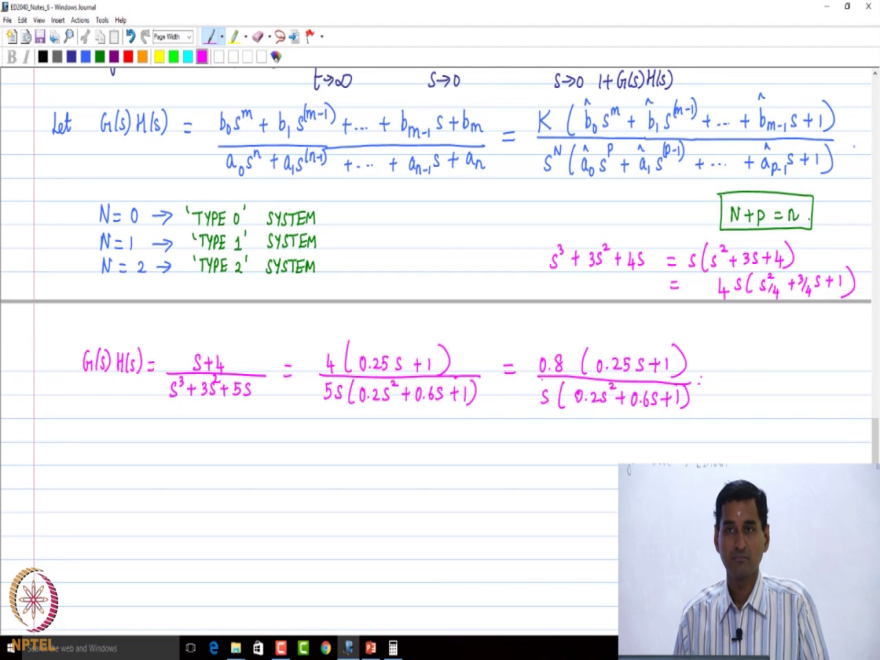 ED2040_Notes_6 - Windows Journal
File Edit View Insert Actions Tools Help
Page Width
B I
t→∞ s→0 s→0 1+G(s)H(s)
Let G(s)H(s) = (b₀s^m + b₁s^(m-1) + ... + b_{m-1}s + b_m) / (a₀s^n + a₁s^(n-1) + ... + a_{n-1}s + a_n) = K(b̂₀s^m + b̂₁s^(m-1) + ... + b̂_{m-1}s + 1) / s^N(â₀s^p + â₁s^(p-1) + ... + â_{p-1}s + 1).
N = 0 → 'TYPE 0' SYSTEM
N = 1 → 'TYPE 1' SYSTEM
N = 2 → 'TYPE 2' SYSTEM
N + p = n.
s³ + 3s² + 4s = s(s² + 3s + 4)
= 4s(s²/4 + 3/4 s + 1)
G(s)H(s) = (s+4) / (s³ + 3s² + 5s) = 4(0.25s + 1) / 5s(0.2s² + 0.6s + 1) = 0.8(0.25s + 1) / s(0.2s² + 0.6s + 1).
NPTEL
the web and Windows